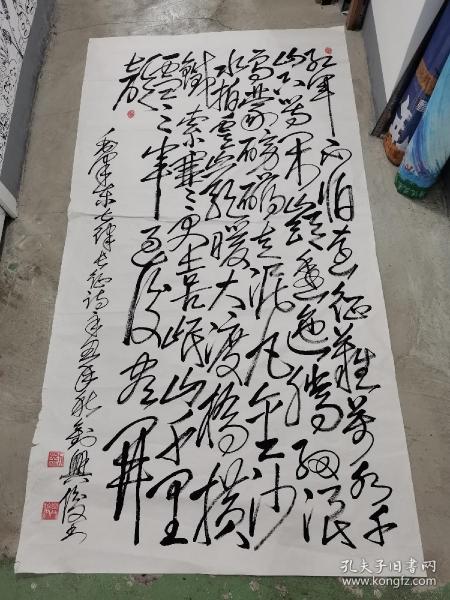 红军不怕远征难万水千
山只等闲五岭逶迤腾细浪
乌蒙磅礴走泥丸金沙
水拍云崖暖大渡桥横
铁索寒更喜岷山千里
雪三军过后尽开
颜
毛泽东七律长征诗辛丑年秋刘兴俊书
孔夫子旧书网
www.kongfz.com